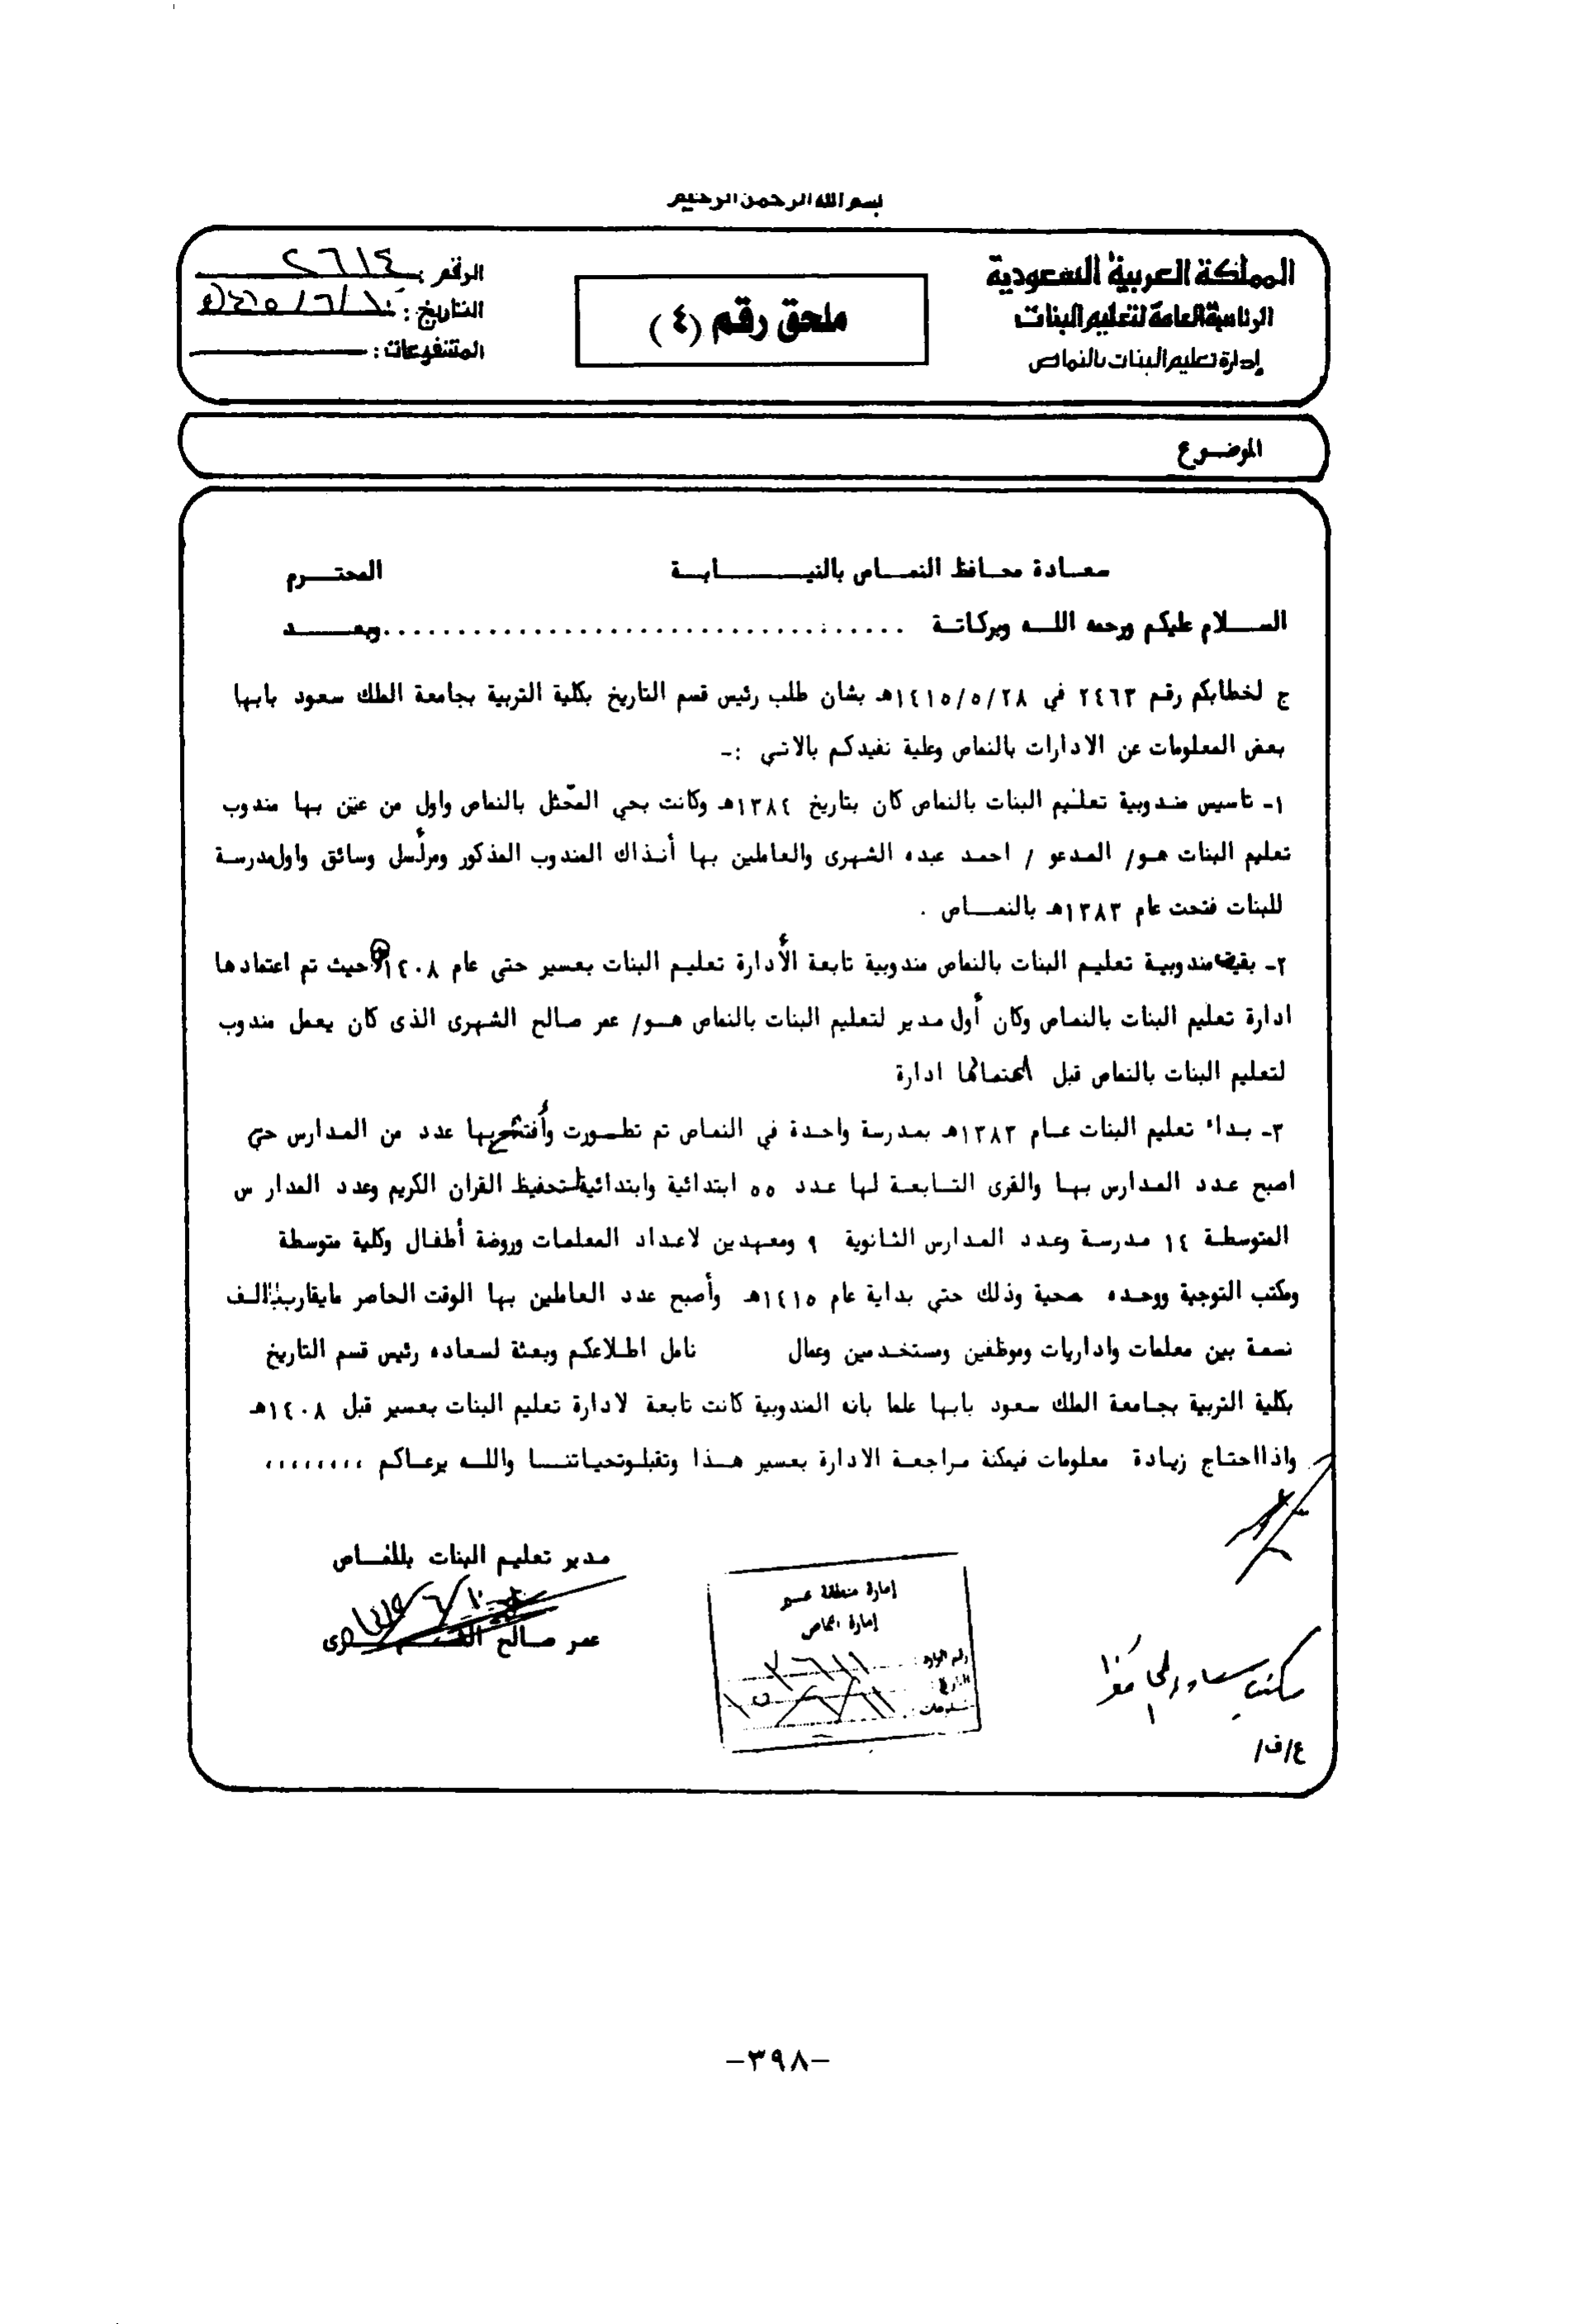 بسم الله الرحمن الرحيم
المملكة العربية السعودية
الرئاسة العامة لتعليم البنات
إدارة تعليم البنات بالنماص
ملحق رقم (٤)
الرقم : ٢٦١٤
التاريخ :
المشفوعات :
الموضوع
سعادة محافظ النماص بالنيابة المحترم
السلام عليكم ورحمه الله وبركاتة ...................................وبعد
ج لخطابكم رقم ٢٤٦٣ في ١٤١٥/٥/٢٨هـ بشان طلب رئيس قسم التاريخ بكلية التربية بجامعة الملك سعود بابها
بعض المعلومات عن الادارات بالنماص وعلية نفيدكم بالاتي :-
١- تاسيس مندوبية تعليم البنات بالنماص كان بتاريخ ١٣٨٤هـ وكانت بحي المحثل بالنماص واول من عين بها مندوب
تعليم البنات هو/ المدعو / احمد عبده الشهرى والعاملين بها أنذاك المندوب المذكور ومرأسل وسائق واول مدرسة
للبنات فتحت عام ١٣٨٣هـ بالنماص .
٢- بقيت مندوبية تعليم البنات بالنماص مندوبية تابعة لأدارة تعليم البنات بعسير حتى عام ١٤٠٨هـ حيث تم اعتمادها
ادارة تعليم البنات بالنماص وكان أول مدير لتعليم البنات بالنماص هو/ عمر صالح الشهرى الذى كان يعمل مندوب
لتعليم البنات بالنماص قبل اعتمادها ادارة
٣- بداء تعليم البنات عام ١٣٨٣هـ بمدرسة واحدة في النماص تم تطورت وأفتتح بها عدد من المدارس حتي
اصبح عدد المدارس بها والقرى التابعة لها عدد ٥٥ ابتدائية وابتدائية لتحفيظ القران الكريم وعدد المدار س
المتوسطة ١٤ مدرسة وعدد المدارس الثانوية ٩ ومعهدين لاعداد المعلمات وروضة أطفال وكلية متوسطة
ومكتب التوجية ووحده صحية وذلك حتي بداية عام ١٤١٥هـ وأصبح عدد العاملين بها الوقت الحاصر مايقارب الف
نسمة بين معلمات واداريات وموظفين ومستخدمين وعمال نامل اطلاعكم وبعثة لسعاده رئيس قسم التاريخ
بكلية التربية بجامعة الملك سعود بابها علما بانه المندوبية كانت تابعة لادارة تعليم البنات بعسير قبل ١٤٠٨هـ
واذا احتاج زيادة معلومات فيمكنة مراجعة الادارة بعسير هذا وتقبلو تحياتنا والله يرعاكم ،،،،،،،،
مدير تعليم البنات بالنماص
عمر صالح الشهرى
إمارة منطقة عسير
إمارة النماص
رقم الوارد :
التاريخ :
ع/ف/
-٣٩٨-